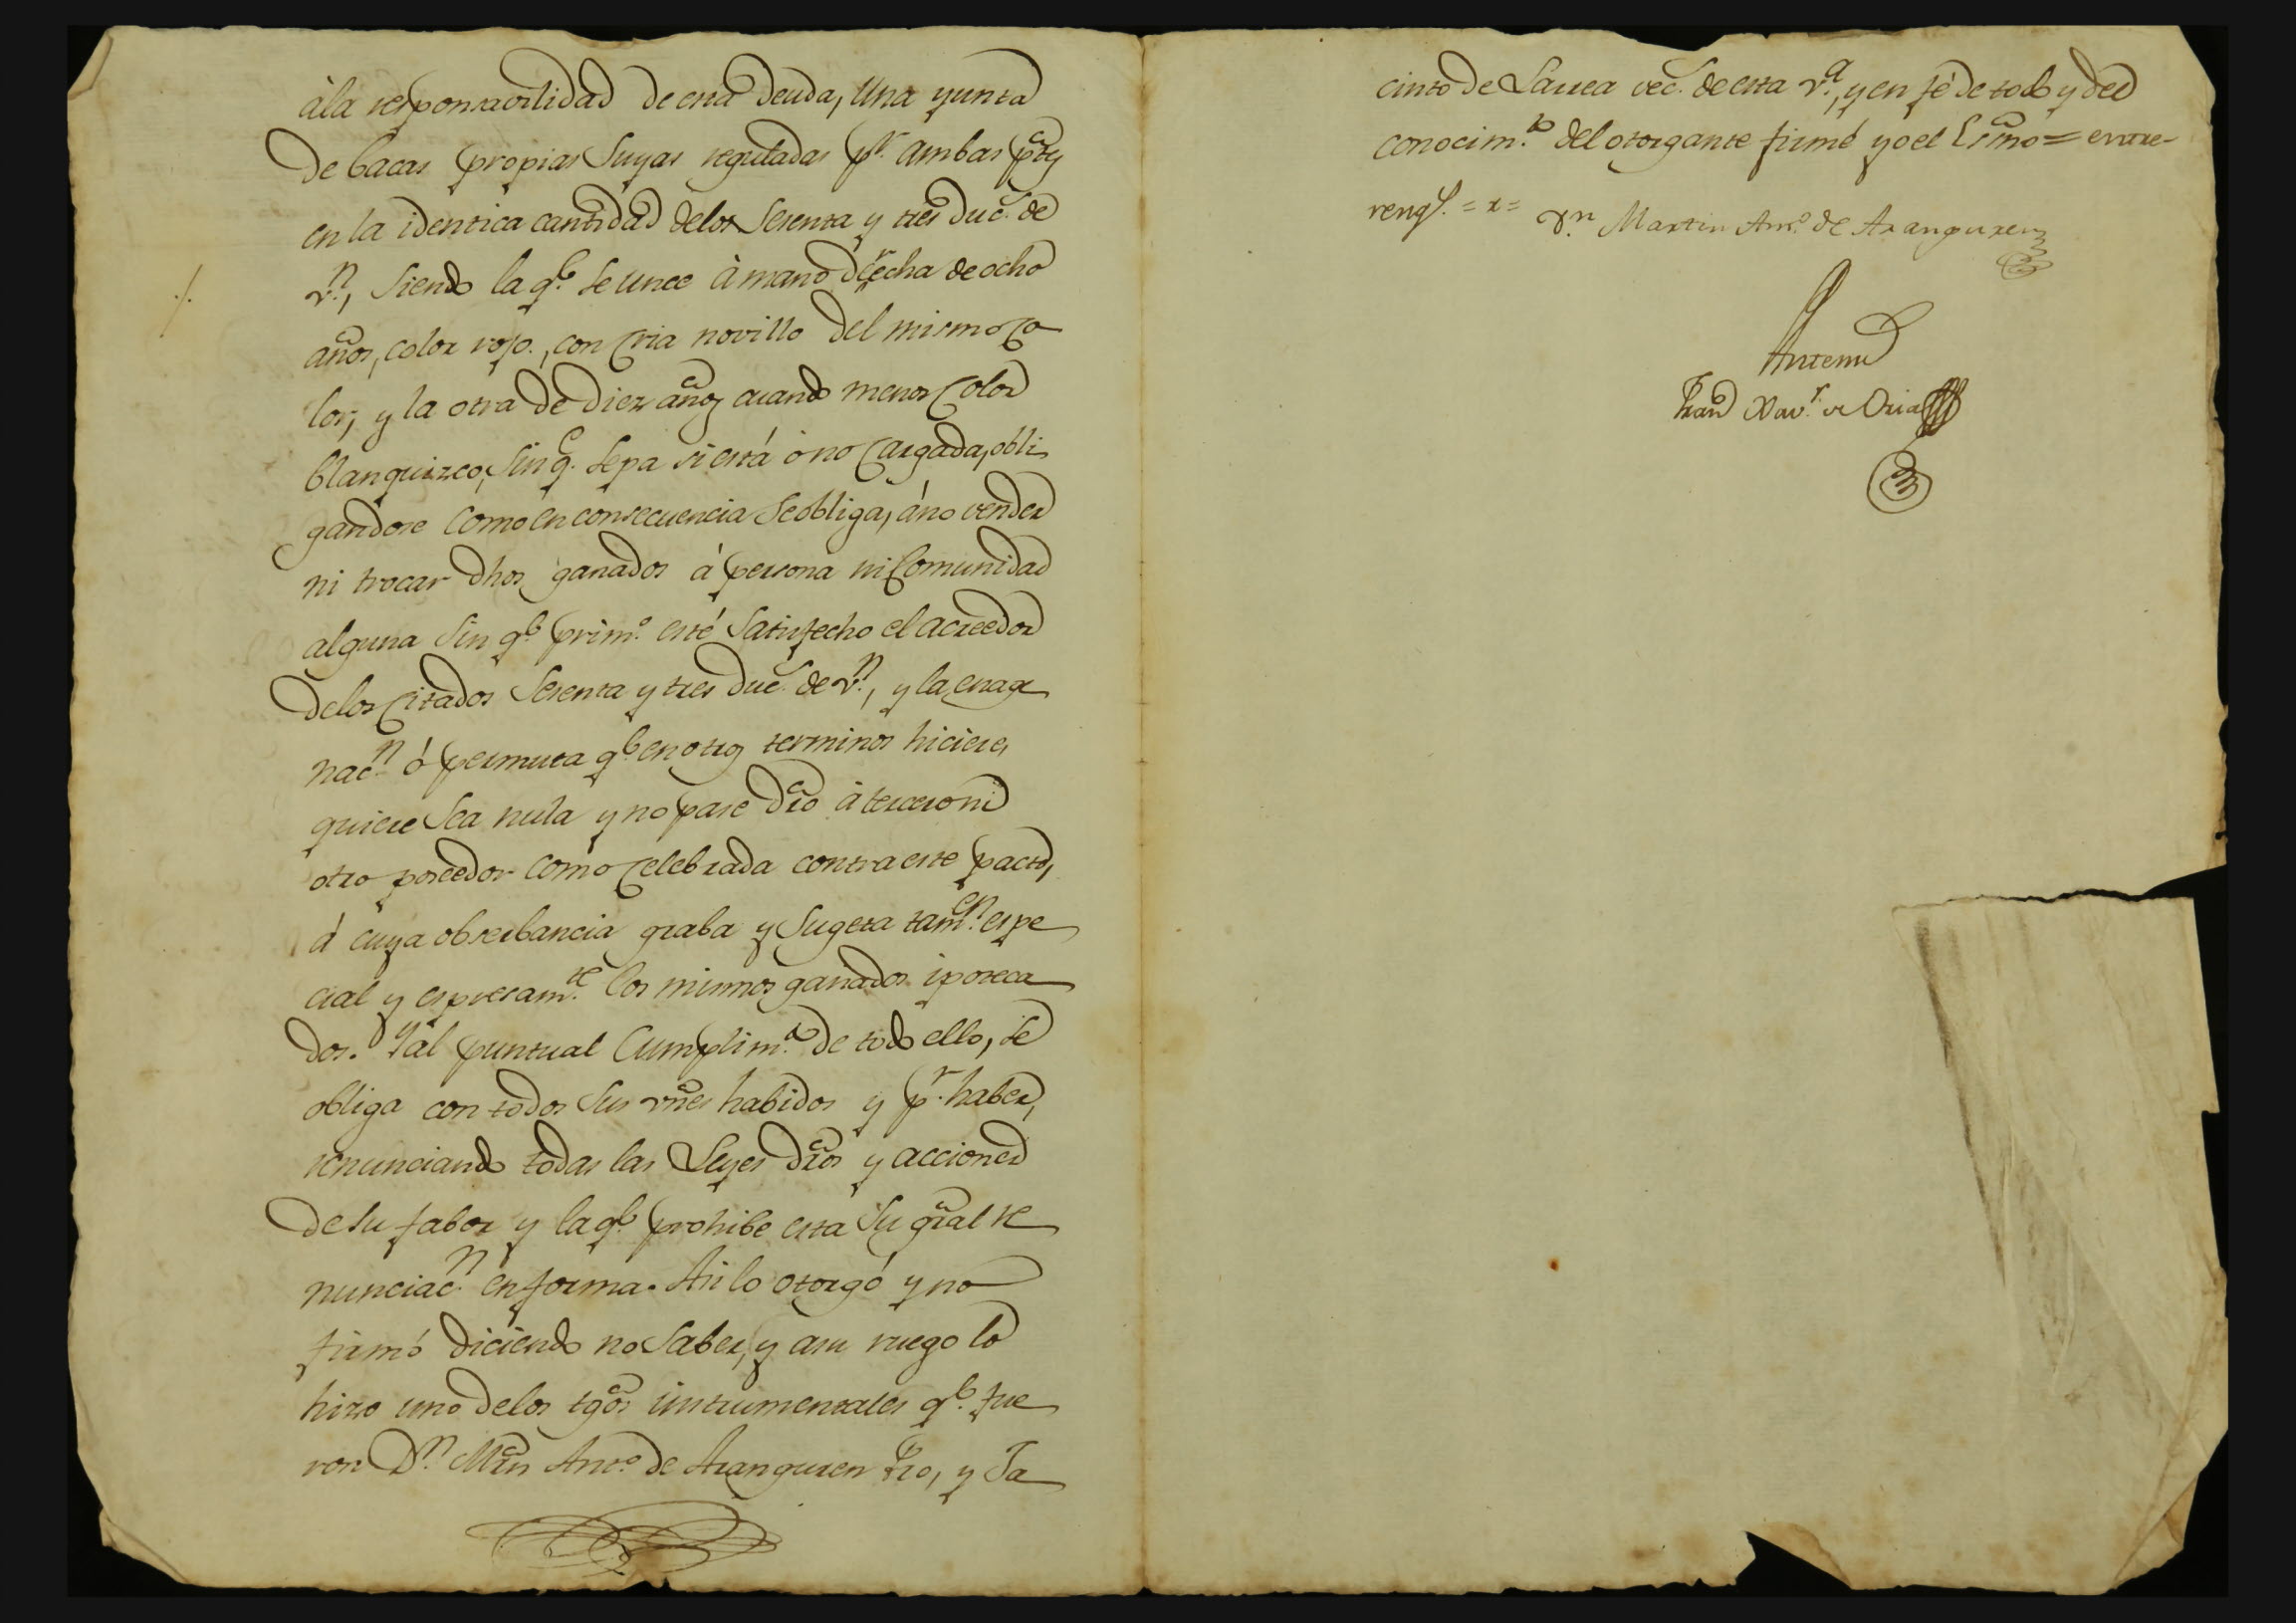 àla responsavilidad de esta deuda, una yunta
de bacas propias suyas reguladas pr. ambas ptes
en la identica cantidad delos sesenta y tres duc.s de
v.n, siendo la q.e se unce à mano drecha de ocho
años, color rojo, con cria novillo del mismo co
lor, y la otra de diez años quando menos color
blanquizco, sin q.e sepa si está ó no cargada, obli
gandose como en consecuencia se obliga, áno vender
ni trocar dhos ganados á persona ni comunidad
alguna sin q.e prim.o esté satisfecho el acreedor
delos citados sesenta y tres duc.s de v.n, y la enage
nac.n ó permuta q.e en otros terminos hiciere,
quiere sea nula y no pase dro à tercero ni
otro poseedor como celebrada contra este pacto,
á cuya obserbancia graba y sugeta tam.en espe
cial y espresam.te los mismos ganados ipoteca
dos. Y al puntual cumplim.to de todo ello, se
obliga con todos sus vnes habidos y p.r haber,
renunciando todas las Leyes dros y acciones
de su fabor y la q.e prohibe esta su gral re
nunciac.n en forma. Asi lo otorgó y no
firmó diciendo no saber, y asu ruego lo
hizo uno delos tgos instrumentales q.e fue
ron D.n Mrn Ant.o de Aranguren Pro, y Ja
cinto de Larrea vec.s de esta v.a, y en fé de todo y del
conocim.to del otorgante firmé yo el Esno = entre-
rengl.s = x =
D.n Martin Ant.o de Aranguren
Antemi
Fran.co Xav.r de Oria